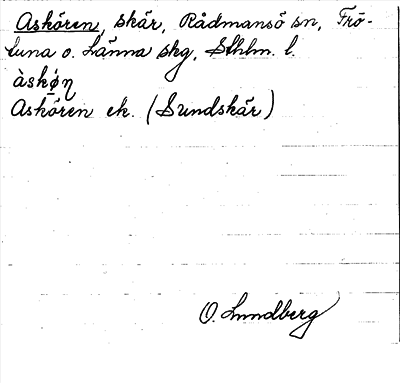 Askören, skär, Rådmansö sn, Frö-
tuna o. Länna skg, Sthlm. l.
àskǿ̱ṇ
Askören ek. (Sundskär)
O. Lundberg